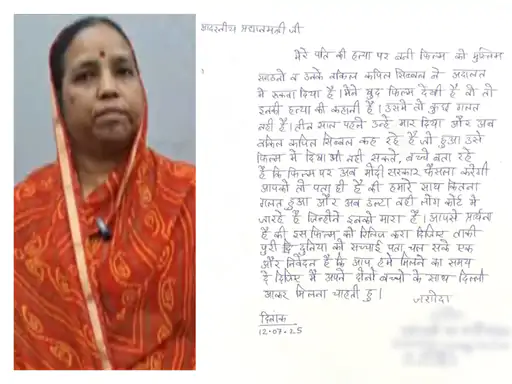 आदरणीय प्रधानमंत्री जी
मेरे पति की हत्या पर बनी फिल्म को मुस्लिम
संगठनो व उनके वकिल कपिल सिब्बल ने अदालत
मे रूकवा दिया है। मैंने खुद फिल्म देखी है वो तो
इनकी हत्या की कहानी है। उसमे तो कुछ गलत
नही है। तीन साल पहले उन्हें मार दिया और अब
वकिल कपिल सिब्बल कह रहे है जो हुआ उसे
फिल्म में दिखा भी नही सकते, बच्चे बता रहे
है कि फिल्म पर अब मोदी सरकार फैसला करेगी
आपको तो पता ही है की हमारे साथ कितना
गलत हुआ और अब उल्टा वही लोग कोर्ट मे
जा रहे है जिन्होने इनको मारा है। आपसे प्रार्थना
है की इस फिल्म को रिलिज करा दिजिए ताकी
पुरी दुनिया को सच्चाई पता चल सके एक
और निवेदन है कि आप, हमे मिलने का समय
दे दिजिए मैं अपने दोनो बच्चो के साथ दिल्ली
आकर मिलना चाहती हु।
जशोदा
दिनांक
12.07.25